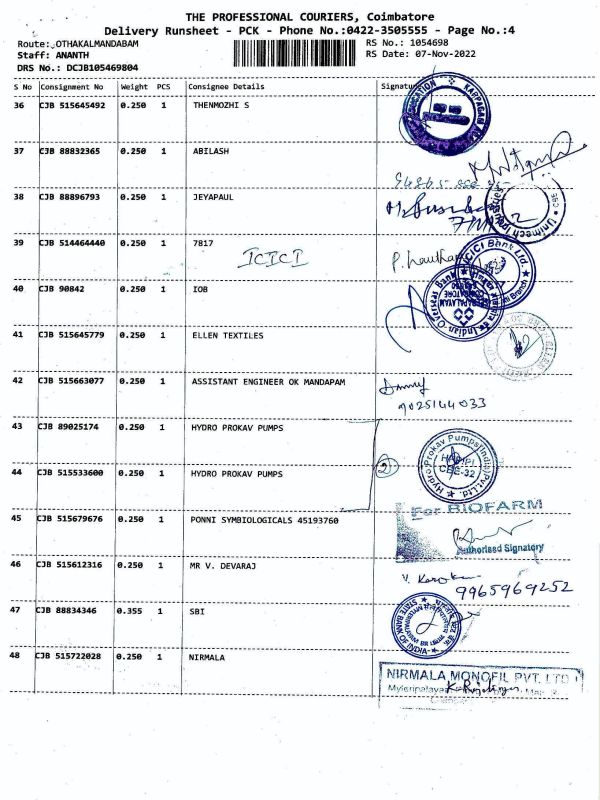 THE PROFESSIONAL COURIERS, Coimbatore
Delivery Runsheet - PCK - Phone No.:0422-3505555 - Page No.:4
Route: OTHAKALMANDABAM RS No.: 1054698
Staff: ANANTH RS Date: 07-Nov-2022
DRS No.: DCJB105469804
S No Consignment No Weight PCS Consignee Details Signature
36 CJB 515645492 0.250 1 THENMOZHI S
37 CJB 88832365 0.250 1 ABILASH
38 CJB 88896793 0.250 1 JEYAPAUL
39 CJB 514464440 0.250 1 7817
ICICI
ICICI Bank Ltd
40 CJB 90842 0.250 1 IOB
Indian Overseas Bank
41 CJB 515645779 0.250 1 ELLEN TEXTILES
42 CJB 515663077 0.250 1 ASSISTANT ENGINEER OK MANDAPAM
9025144033
43 CJB 89025174 0.250 1 HYDRO PROKAV PUMPS
Hydro Prokav Pumps(India) Pvt.Ltd.
CBE-32
44 CJB 515533600 0.250 1 HYDRO PROKAV PUMPS
2
For BIOFARM
45 CJB 515679676 0.250 1 PONNI SYMBIOLOGICALS 45193760
Authorised Signatory
46 CJB 515612316 0.250 1 MR V. DEVARAJ
9965969252
47 CJB 88834346 0.355 1 SBI
STATE BANK OF INDIA
48 CJB 515722028 0.250 1 NIRMALA
NIRMALA MONOFIL PVT. LTD